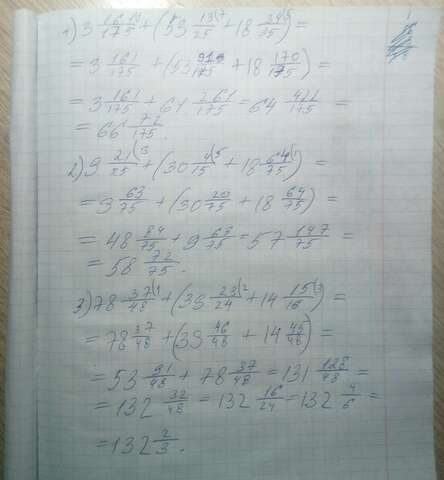 1) 3 161/175 + (53 13/25 + 18 34/35) =
= 3 161/175 + (53 91/175 + 18 170/175) =
= 3 161/175 + 61 261/175 = 64 422/175 =
= 66 72/175.
2) 9 21/25 + (30 4/15 + 18 64/75) =
= 9 63/75 + (30 20/75 + 18 64/75) =
= 48 84/75 + 9 63/75 = 57 147/75 =
= 58 72/75.
3) 78 37/48 + (39 23/24 + 14 15/16) =
= 78 37/48 + (39 46/48 + 14 45/48) =
= 53 91/48 + 78 37/48 = 131 128/48 =
= 132 32/48 = 132 16/24 = 132 4/6 =
= 132 2/3.